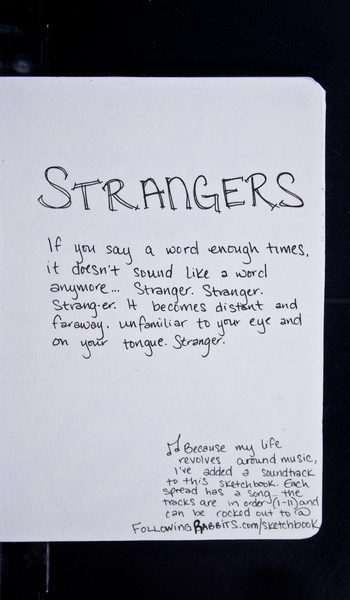 STRANGERS
If you say a word enough times,
it doesn't sound like a word
anymore... Stranger. Stranger.
Strang-er. It becomes distant and
faraway, unfamiliar to your eye and
on your tongue. Stranger.
♫ Because my life
revolves around music,
I've added a soundtrack
to this sketchbook. Each
spread has a song... the
tracks are in order (1-11) and
can be rocked out to @
FOLLOWINGRABBITS.com/sketchbook